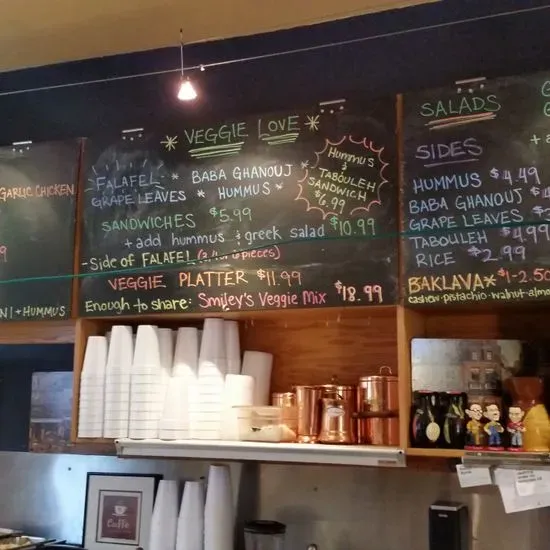 GARLIC CHICKEN
+ HUMMUS
* VEGGIE LOVE *
FALAFEL * BABA GHANOUJ *
GRAPE LEAVES * HUMMUS *
SANDWICHES $5.99
+ add hummus & greek salad $10.99
-Side of FALAFEL
VEGGIE PLATTER $11.99
Enough to share: Smiley's Veggie Mix $18.99
HUMMUS
&
TABOULEH
SANDWICH
$6.99
SALADS
SIDES
HUMMUS $4.49
BABA GHANOUJ
GRAPE LEAVES
TABOULEH $4.99
RICE $2.99
BAKLAVA* $1-2.50
cashew·pistachio·walnut·almo
Caffè